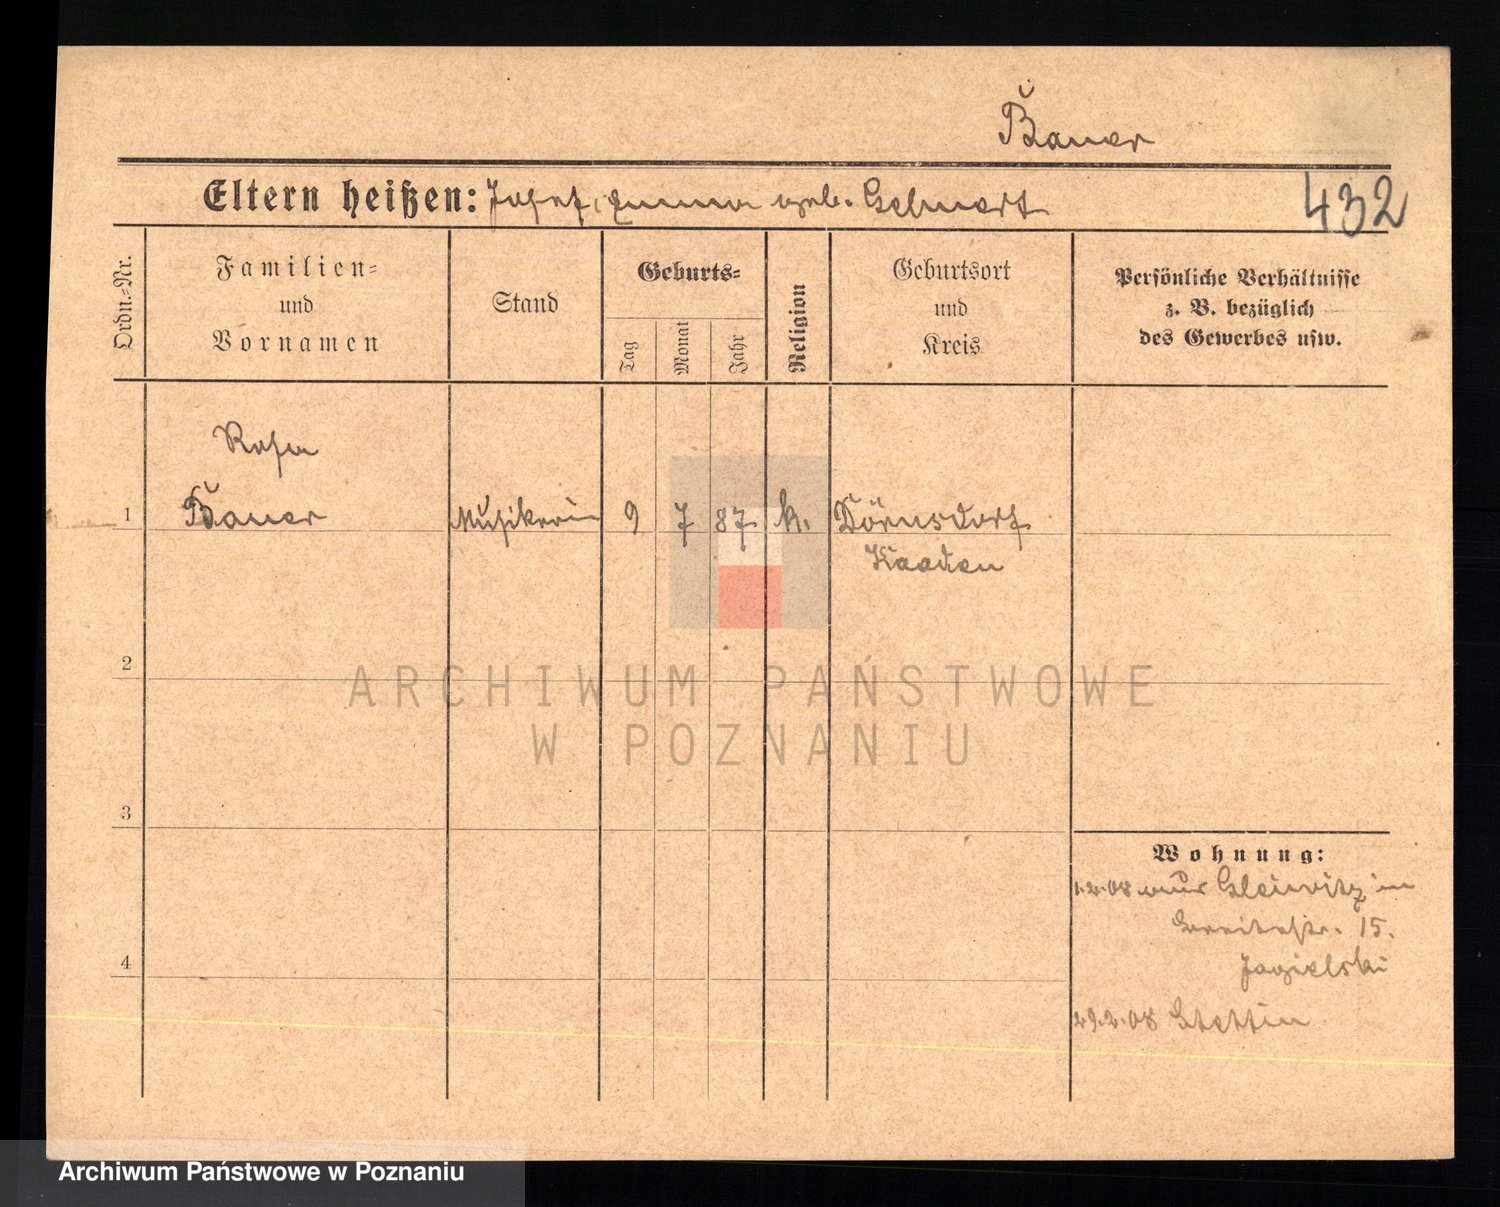 Bauer
Eltern heißen: Josef, Emma geb. Gehnert
432
Ordn.-Nr.
Familien-
und
Vornamen
Stand
Geburts-
Tag
Monat
Jahr
Religion
Geburtsort
und
Kreis
Persönliche Verhältnisse
z. B. bezüglich
des Gewerbes usw.
Rosa
1 Bauer Musikerin 9 7 87. k. Dörnsdorf
Kaaden
2
3
4
Wohnung:
1.2.08 aus Gleiwitz in
Breitestr. 15.
Jagielski
29.2.08 Stettin
ARCHIWUM PAŃSTWOWE
W POZNANIU
Archiwum Państwowe w Poznaniu